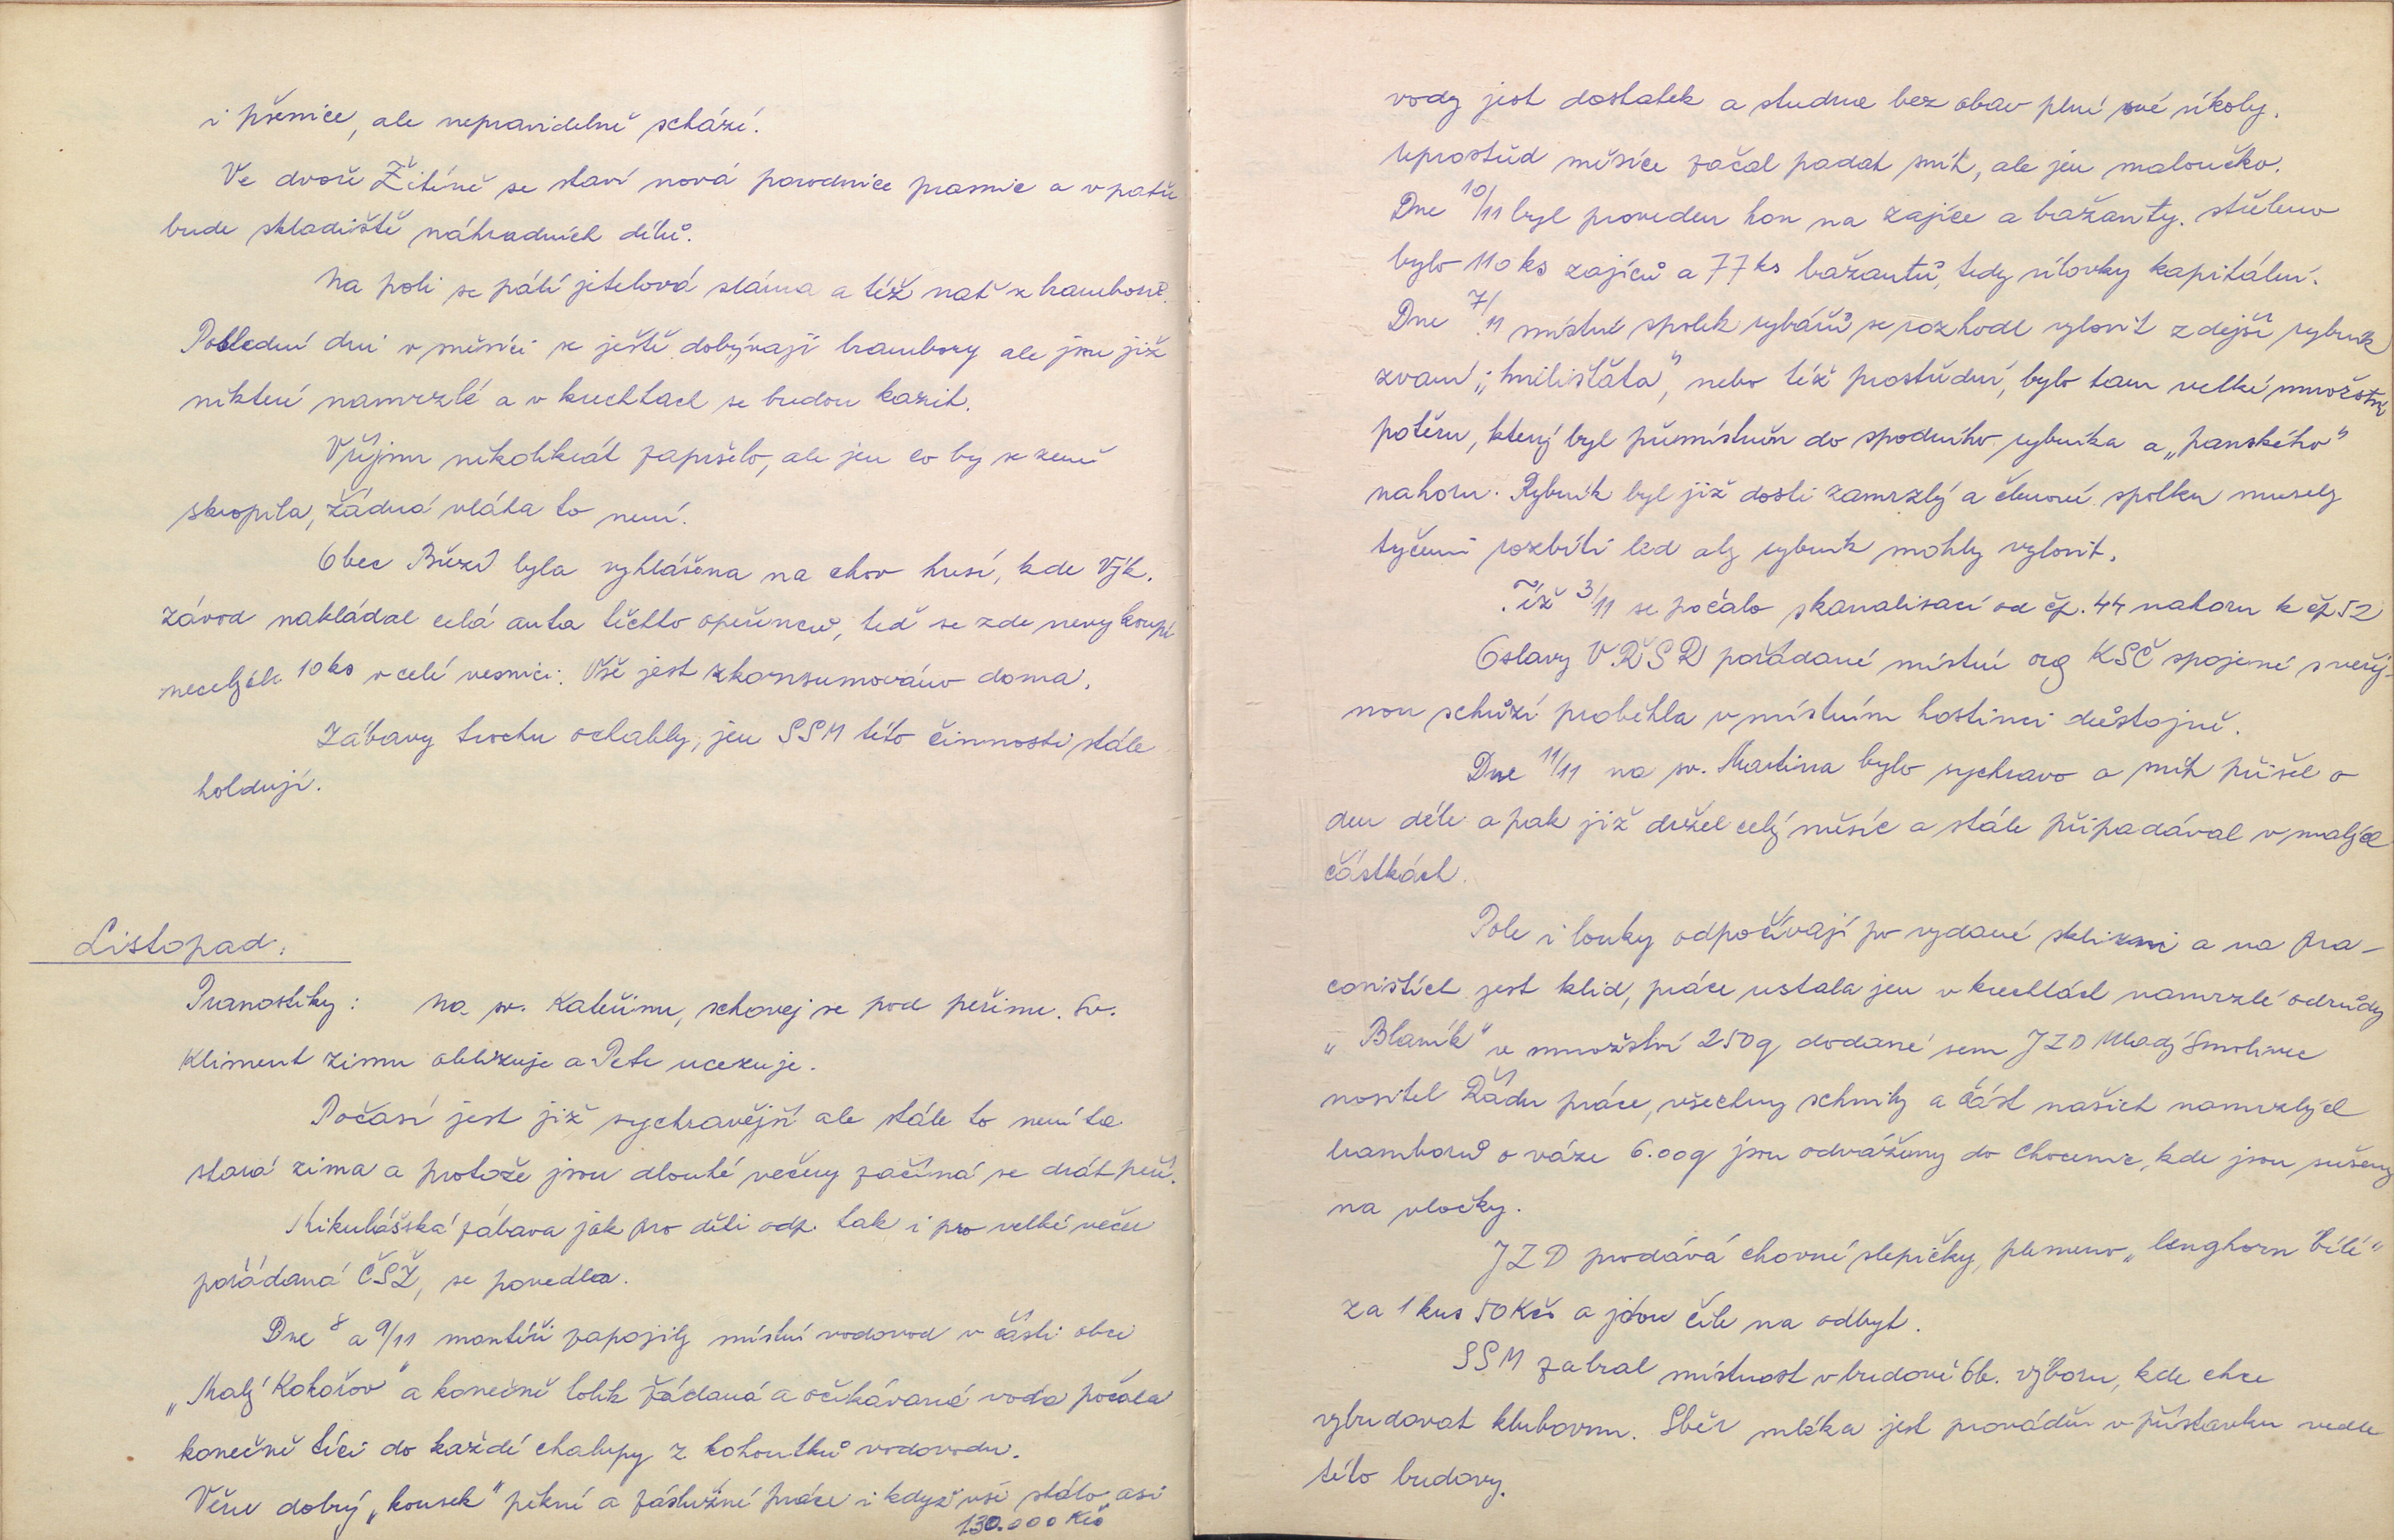 i pšenice, ale nepravidelně schází.
Ve dvoře Žitíně se staví nová porodnice prasnic a v patře
bude skladiště náhradních dílů.
Na poli se pálí jetelová sláma a též nať z brambor.
Poslední dni v měsíci se ještě dobývají brambory ale jsou již
někteří namrzlé a v krechtach se budou kazit.
V říjnu několikrát zapršelo, ale jen co by se země
skropila, žádná vláha to není.
Obec Březí byla vyhlášena na chov husí, kde Výk.
závod nakládal celá auta těchto opeřenců, teď se zde nevykoupí
necelých 10 ks v celé vesnici. Vše jest zkonsumováno doma.
Zábavy trochu ochably, jen SSM této činnosti stále
holdují.
Listopad:
Pranostiky: Na sv. Kateřinu, schovej se pod peřinu. Sv.
Kliment zimu oblizuje a Petr ucezuje.
Počasí jest již sychravější ale stále to není ta
stará zima a protože jsou dlouhé večery začíná se drát peří.
Mikulášská zábava jak pro děti odp. tak i pro velké večer
pořádaná ČSŽ, se povedla.
Dne 8 a 9/11 montéři zapojily místní vodovod v části obci
„Malý Kokořov" a konečně tolik žádaná a očekávaná voda počala
konečně téci do každé chalupy z kohoutků vodovodu.
Věru dobrý „kousek" pěkné a záslužné práce i když vše stálo asi
130.000 Kčs
vody jest dostatek a studna bez obav plní své úkoly.
Uprostřed měsíce začal padat sníh, ale jen maloučko.
Dne 10/11 byl proveden hon na zajíce a bažanty. Střeleno
bylo 110 ks zajíců a 77 ks bažantů, tedy úlovky kapitální.
Dne 7/11 místní spolek rybářů se rozhodl vylovit zdejší rybník
zvaní „hnilišťata", nebo též prostřední, bylo tam velké množství
potěru, který byl přemístněn do spodního rybníka a „panského"
nahoru. Rybník byl již dosti zamrzlý a členové spolku musely
tyčemi rozbíti led aby rybník mohly vylovit.
Též 3/11 se počalo s kanalisací od čp. 44 nahoru k čp 52
Oslavy VŘSR pořádané místní org KSČ spojené s veřej-
nou schůzí proběhla v místním hostinci důstojně.
Dne 11/11 na sv. Martina bylo sychravo a sníh přišel o
den déle a pak již držel celý měsíc a stále připadával v malých
částkách.
Pole i louky odpočívají po vydané sklizni a na pra-
covištích jest klid, práce ustala jen v krechtách namrzlé odrůdy
„Blaník" v množství 250 q dodané sem JZD Mladý Smolivec
nositel Řádu práce, všechny schnily a část našich namrzlých
bramborů o váze 6.00 q jsou odváženy do Chocenic, kde jsou sušeny
na vločky.
JZD prodává chovné slepičky, plemeno „lenghorn bílé"
za 1 kus 50 Kčs a jdou čile na odbyt.
SSM zabral místnost v budově Ob. výboru, kde chce
vybudovat klubovnu. Sběr mléka jest prováděn v přístavku vedle
této budovy.